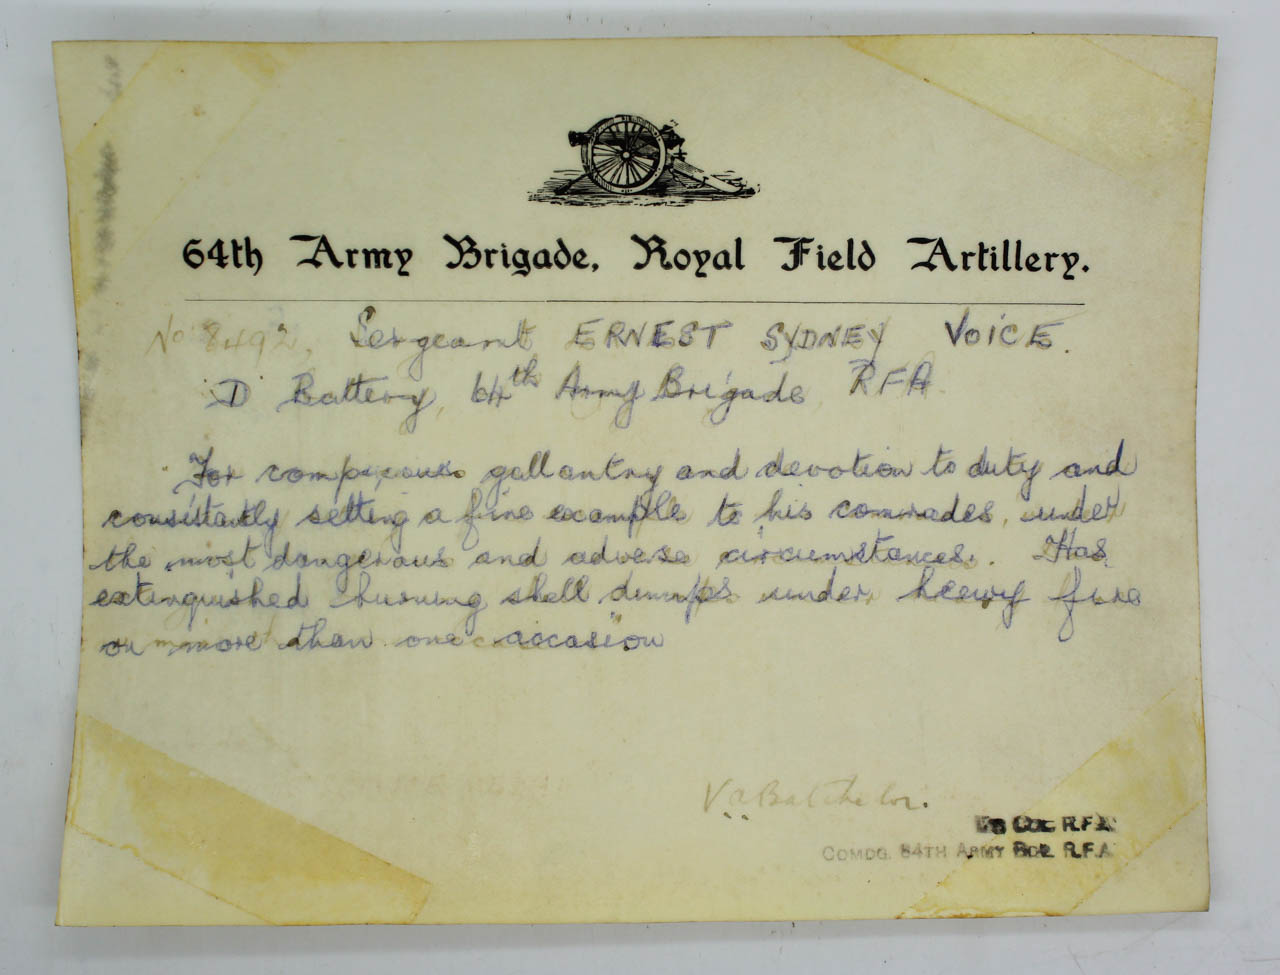 64th Army Brigade, Royal Field Artillery.
No 8492, Sergeant ERNEST SYDNEY VOICE.
D Battery, 64th Army Brigade, RFA
For conspicuous gallantry and devotion to duty and
constantly setting a fine example to his comrades, under
the most dangerous and adverse circumstances. Has
extinguished burning shell dumps under heavy fire
on more than one occasion
Batchelor.
Col R.F.A.
COMDG. 64TH ARMY BDE R.F.A.